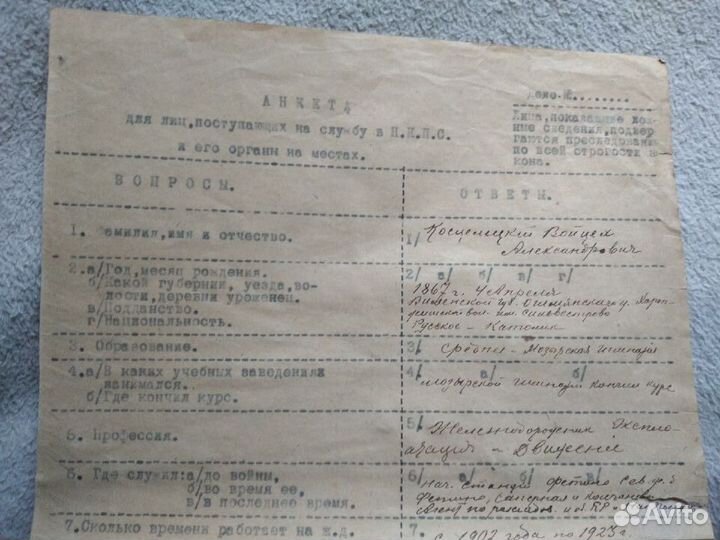 АНКЕТА
для лиц, поступающих на службу в Н.К.П.С.
и его органы на местах.
Дело №........
Лица, показавшие лож-
ные сведения, подвер
гаются преследованию
по всей строгости за
кона.
ВОПРОСЫ.
ОТВЕТЫ.
1. Фамилия, имя и отчество.
1/ Войцех
Александрович
2.а/Год, месяц рождения.
б/Какой губернии, уезда, во-
лости, деревни уроженец.
в/Подданство.
г/Национальность.
2/ а/ б/ в/ г/
1867 г. 4 Апреля
Виленской губ. Ошмянского у.
им. Сильвестрово
Русское - Католик
3. Образование.
3/ Средне - Мозырская гимназия
4.а/В каких учебных заведениях
занимался.
б/Где кончил курс.
4/ а/ б/
Мозырской гимназии кончил курс
5. Профессия.
5/ Железнодорожник Эксплo-
атация - Движение
6. Где служил:а/до войны,
б/во время ее,
в/в последнее время.
6/ а/ б/ в/
нач. станции Фетино Сев. ж. д
Фетино,
7.Сколько времени работает на ж.д.
7.
с 1902 года по 1923 г.
Avito